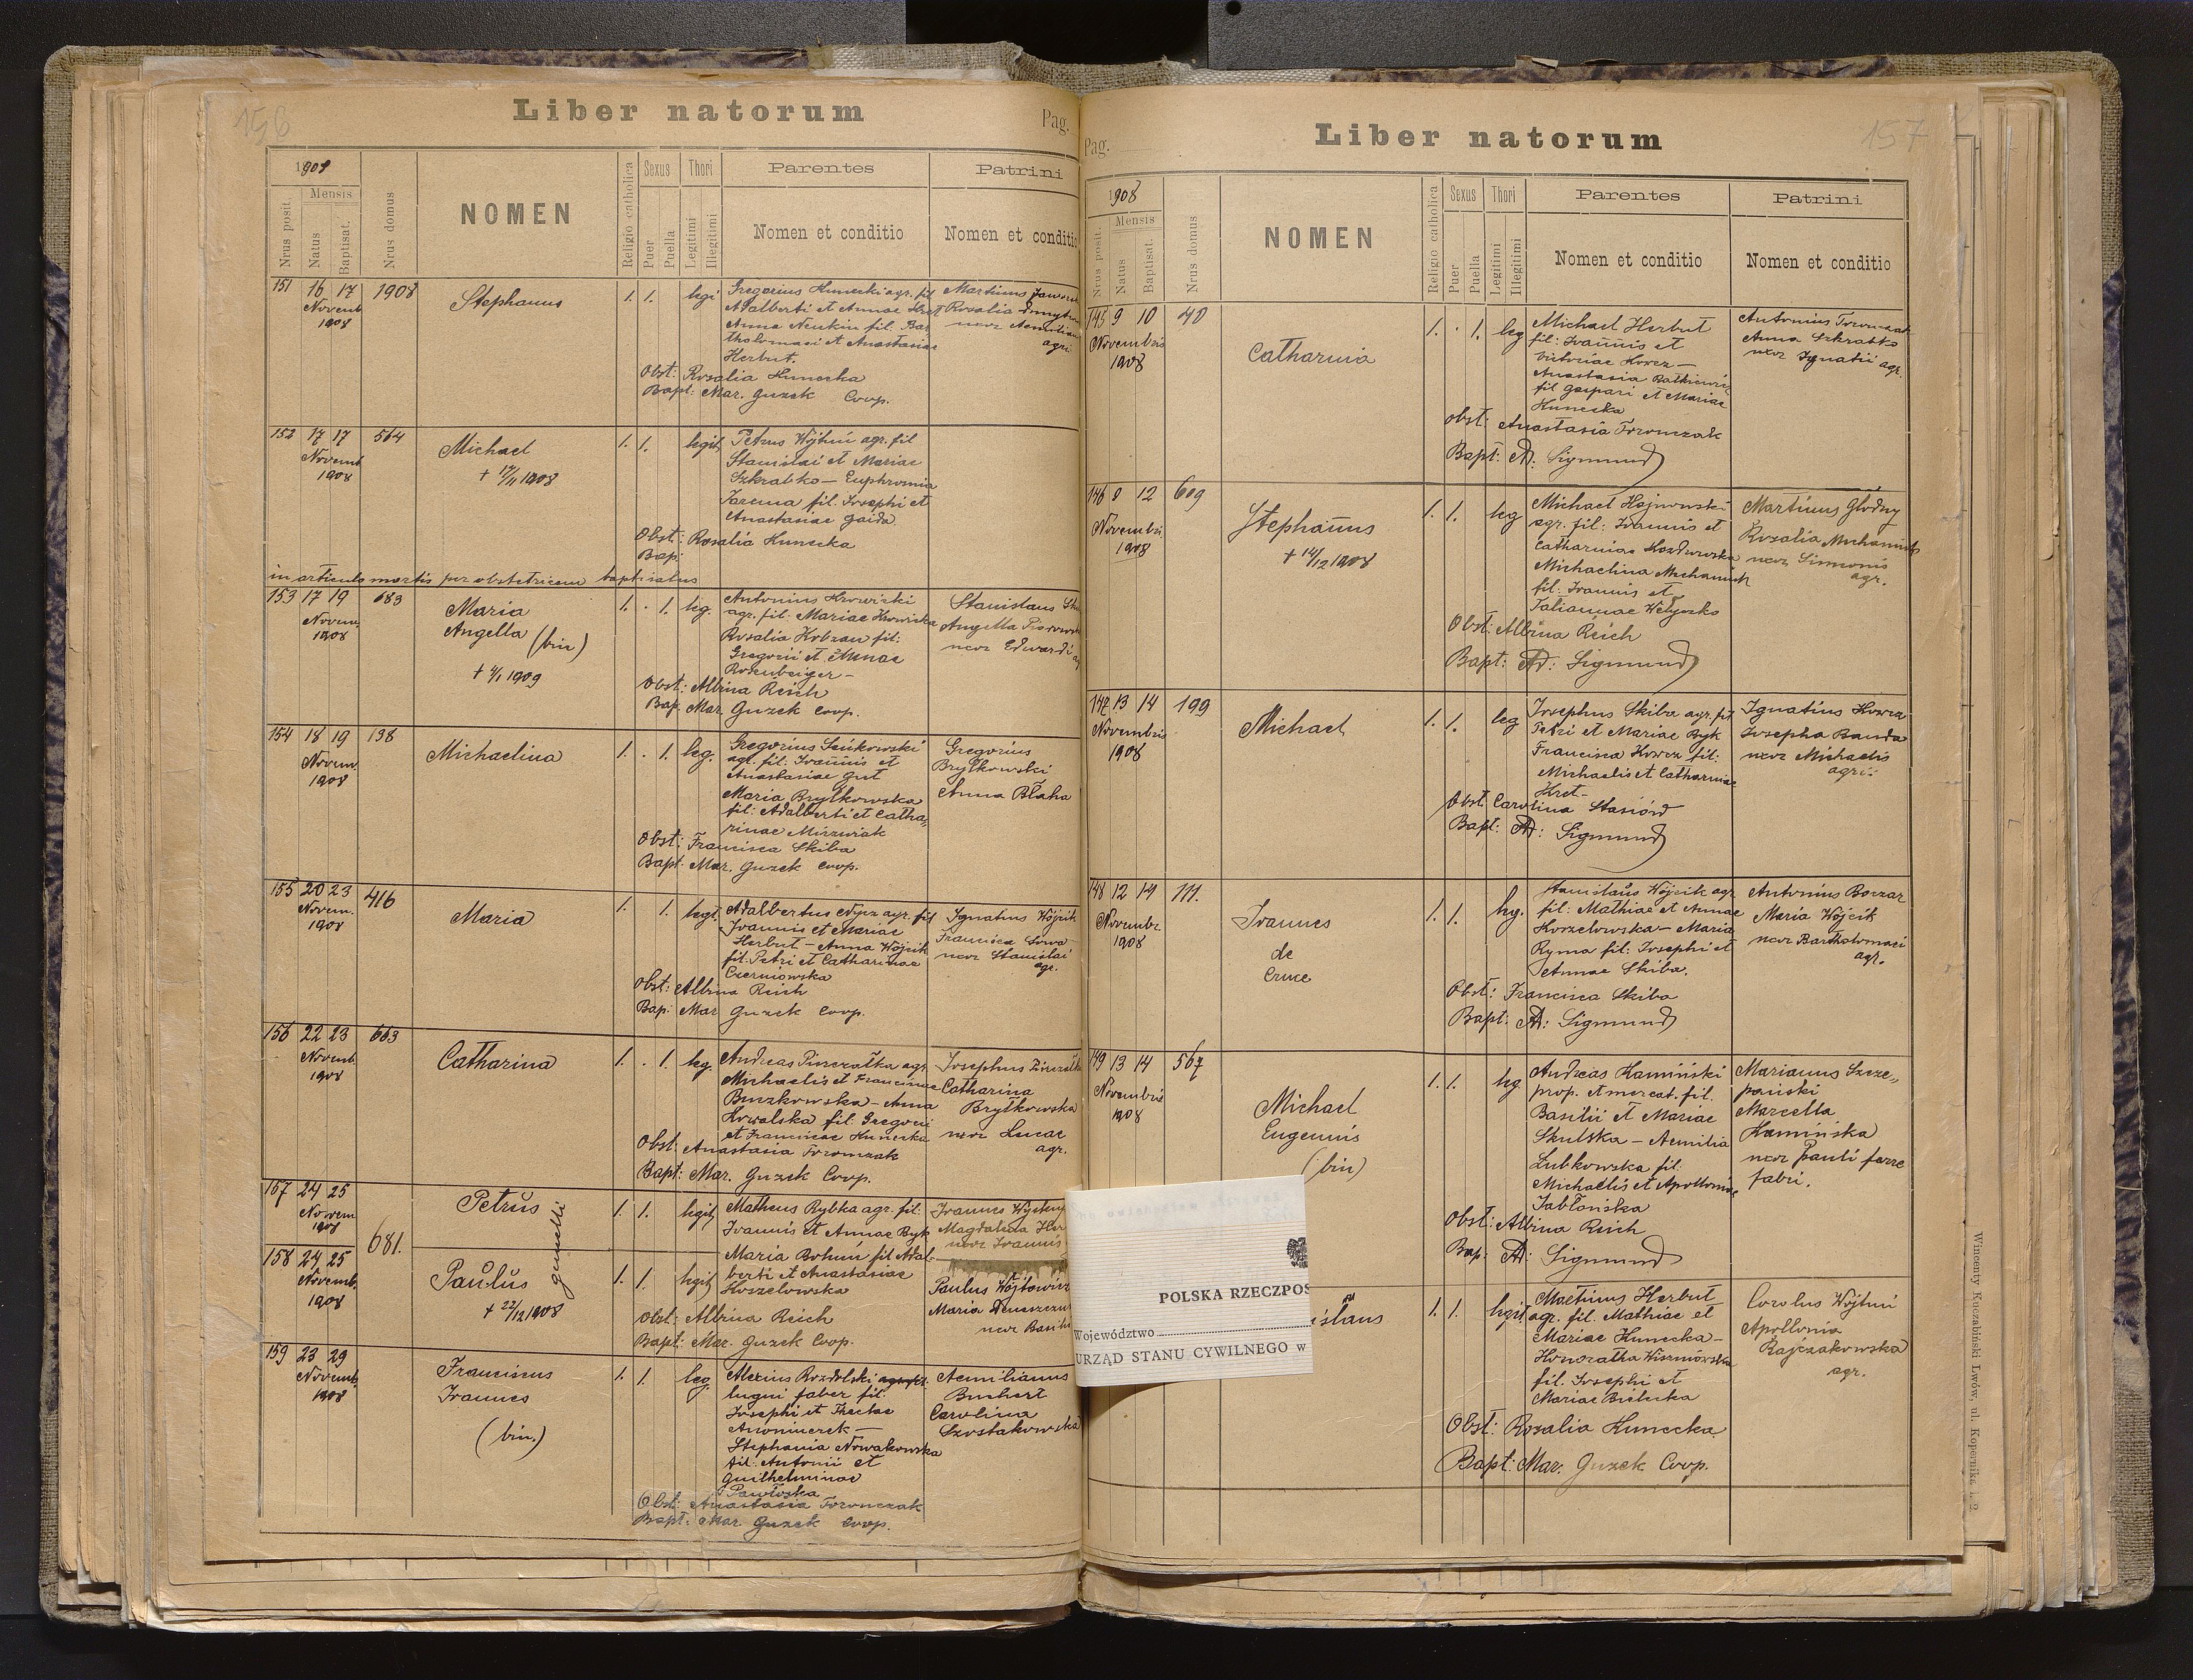 156
Liber natorum
Pag.
1908
Nrus posit.
Mensis
Natus
Baptisat.
Nrus domus
NOMEN
Religio catholica
Sexus
Puer
Puella
Thori
Legitimi
Illegitimi
Parentes
Nomen et conditio
Patrini
Nomen et conditio
151 16 17 1908
Novemb
1908
Stephanus
1. 1. legi
Gregorius Kunecki agr. fil
Adalberti et Annae Hret
Anna fil. Bar
tholomaei et Anastasiae
Herbut.
Martinus
Rosalia
uxor
agri
Obst: Rosalia Kunecka
Bapt: Mar. Guzek Coop.
152 17 17 564
Novemb
1908
Michael
+ 17/11 1908
1. 1. legit
Petrus Wójtuń agr. fil
Stanislai et Mariae
Szkrabko – Euphrosnia
Jarema fil. Josephi et
Anastasiae Gaida
Obst: Rosalia Kunecka
Bap:
in articulo mortis per obstetricem baptisatus
153 17 19 683
Novem.
1908
Maria
Angella (bin)
+ 4/1 1909
1. . 1. leg.
Antonius Krowicki
agr. fil: Mariae Krowicka
Rosalia Kobzan fil:
Gregorii et Annae
Rosenbeiger –
Stanislaus
Angella
uxor Edwardi
Obst: Albina Reich
Bap. Mar. Guzek Coop.
154 18 19 138
Novem.
1908
Michaelina
1. . 1. leg.
Gregorius Seńkowski
agr. fil: Joannis et
Anastasiae Gut
Maria Bryłkowska
fil: Adalberti et Catha„
rinae
Gregorius
Bryłkowski
Anna Błaha
Obst: Francisca Skiba
Bapt. Mar. Guzek Coop.
155 20 23 416
Novem.
1908
Maria
1. 1. legt.
Adalbertus agr. fil
Joannis et Mariae
Herbut – Anna Wójcik
fil: Petri et Catharinae
Czerniowska
Ignatius Wójcik
Francisca Sowa
uxor Stanislai
agr.
Obst: Albina Reich
Bap: Mar Guzek Coop.
156 22 23 663
Novemb.
1908
Catharina
1. . 1. leg.
Andreas Pinczałka agr
Michaelis et Franciscae
Buczkowska – Anna
Kowalska fil: Gregorii
et Franciscae Kunecka
Josephus
Catharina
Bryłkowska
uxor Lucae
agr.
Obst: Anastasia Toronczak
Bapt: Mar. Guzek Coop.
157 24 25
Novem
1908
681.
Petrus
gemelli
1. 1. legit
Matheus Rybka agr. fil.
Joannis et Annae Byk
Maria Bohuń fil Adal-
berti et Anastasiae
Koszelowska
Joannes
Magdalena Her
uxor Joannis
158 24 25
Novemb.
1908
Paulus
+ 22/12 1908
1. 1. legit
Paulus Wójtowicz
Maria
uxor Basilii
Obst: Albina Reich
Bapt: Mar. Guzek Coop.
159 23 29
Novemb.
1908
Franciscus
Joannes
(bin.)
1. 1. leg.
Alexius Rozdolski
lugni faber fil:
Josephi et Theclae
Stephania Nowakowska
fil: Antonii et
Guilhelminae
Pawłoska
Aemilianus
Buchert
Carolina
Szostakowska
Obst: Anastasia Toronczak
Bapt. Mar. Guzek Coop.
157
Liber natorum
Pag.
1908
Nrus posit.
Mensis
Natus
Baptisat.
Nrus domus
NOMEN
Religio catholica
Sexus
Puer
Puella
Thori
Legitimi
Illegitimi
Parentes
Nomen et conditio
Patrini
Nomen et conditio
145 9 10 40
Novembris
1908
Catharina
1. . 1. leg
Michael Herbut
fil: Joannis et
Victoriae Kowcz –
Anastasia
fil Gaspari et Mariae
Kunecka
Antonius Toronczak
Anna Szkrabko
uxor Ignatii agr.
Obst: Anastasia Toronczak
Bapt: A: Sigmund
146 8 12 609
Novembris
1908
Stephanus
+ 14/12 1908
1. 1. leg
Michael Hajnowski
agr. fil: Joannis et
Catharinae
Michaelina
fil: Joannis et
Tatiannae Wełyczko
Martinus Głodny
Rozalia
uxor Simeonis
agr.
Obst: Albina Reich
Bapt: A: Sigmund
147 13 14 199
Novembris
1908
Michael
1. 1. leg
Josephus Skiba agr. fil.
Petri et Mariae Byk
Francisca Kowcz fil:
Michaelis et Catharinae
Hret –
Ignatius Kowcz
Josepha Banda
uxor Michaelis
agri.
Obst: Carolina Stasiów
Bapt: A: Sigmund
148 12 14 111.
Novembr.
1908
Joannes
de
Cruce
1. 1. leg.
Stanislaus Wójcik agr
fil: Mathiae et Annae
Korzelowska – Maria
Ryma fil: Josephi et
Annae Skiba.
Antonius Boczar
Maria Wójcik
uxor Bartholomaei
agr.
Obst: Francisca Skiba
Bapt: A: Sigmund
149 13 14 567
Novembris
1908
Michael
Eugenius
(bin)
1. 1. leg
Andreas Kamiński
prop. et mercat. fil.
Basilii et Mariae
Skulska – Aemilia
Lubkowska fil.
Michaelis et Apolloniae
Jabłońska
Marianus Szcze„
pański
Marcella
Kamińska
uxor Pauli ferre
fabri.
Obst: Albina Reich
Bap: A: Sigmund
islaus
1. 1. legit
Martinus Herbut
agr. fil. Mathiae et
Mariae Kunecka –
Honoratha Wiszniowska
fil. Josephi et
Mariae Bielecka
Carolus Wójtuń
Apollonia
Rajczakowska
agr.
Obst: Rosalia Kunecka
Bapt: Mar. Guzek Coop.
POLSKA RZECZPOS
Województwo
URZĄD STANU CYWILNEGO w
Wincenty Kuczabiński Lwów, ul. Kopernika l. 2